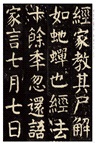 經家教其戸解
如虵蟬也經法
卌餘年忽還語
家言七月七日